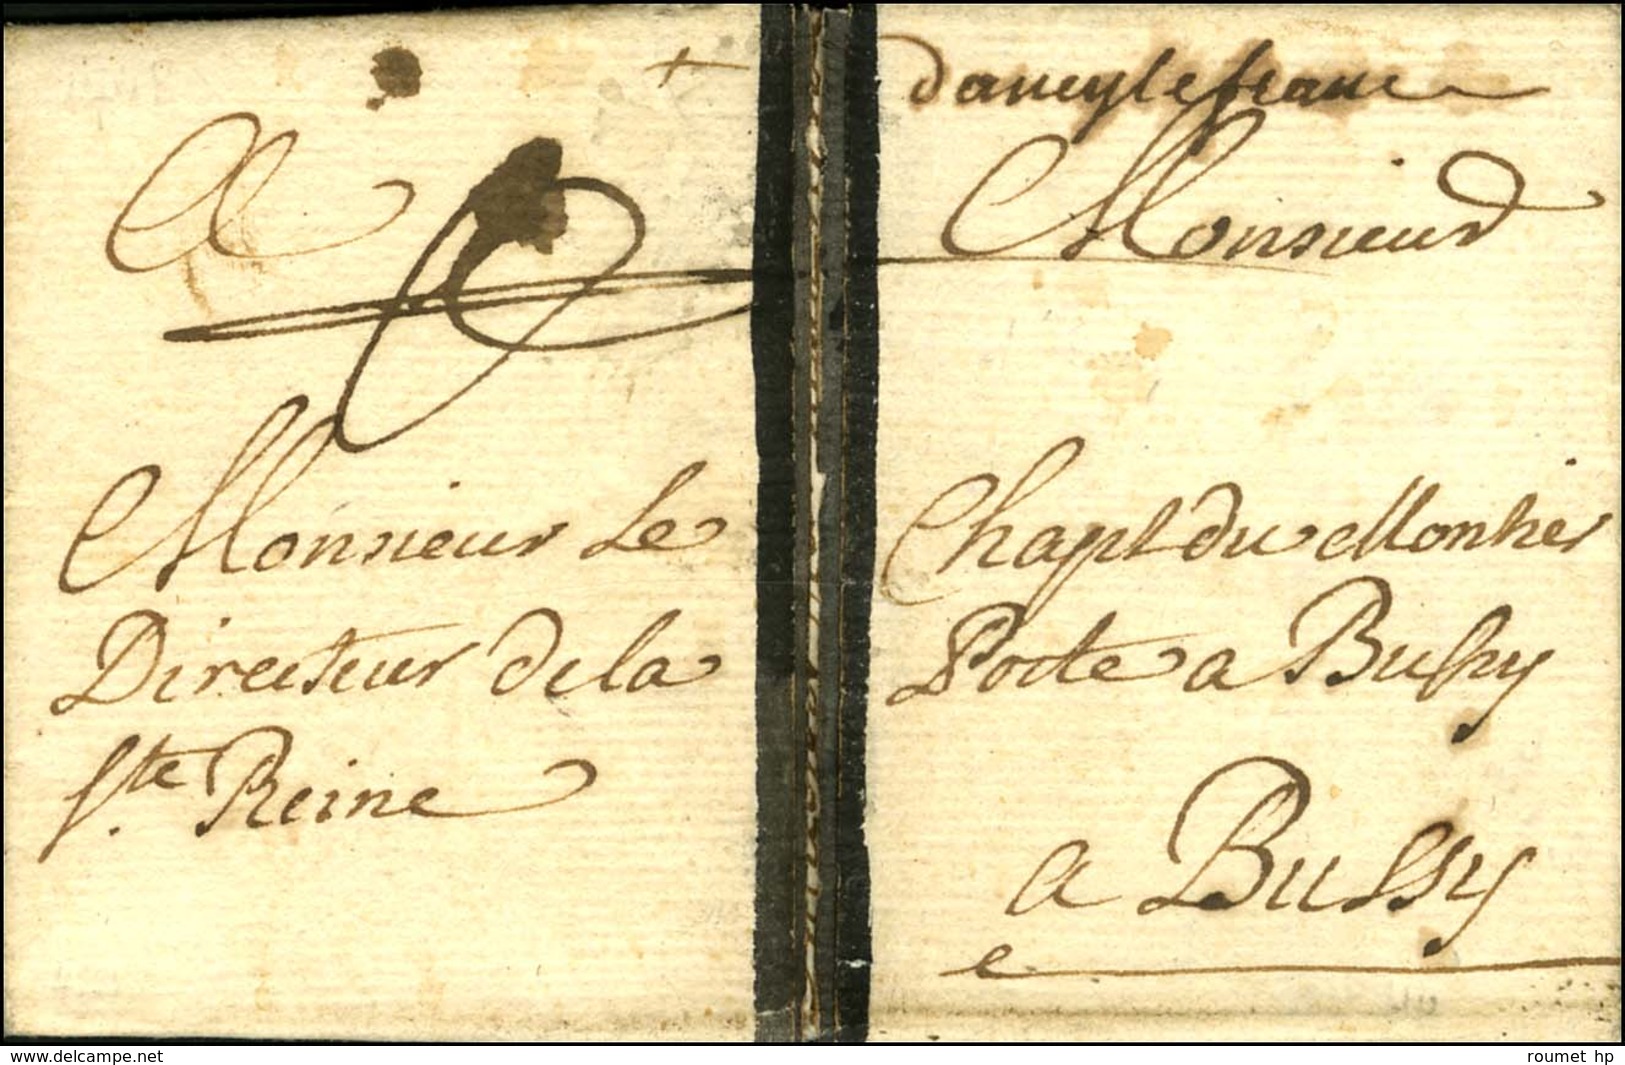 A
Monsieur Le
Directeur de la
Ste Reine
+
d'ancy le franc
Monsieur
Chapt du Montier
Porte a Bussy
a Bussy
www.delcampe.net
roumet hp